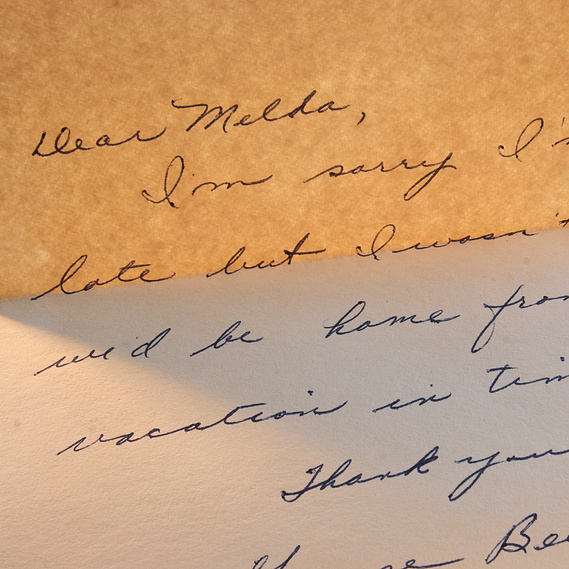 Dear Melda,
I'm sorry I'
late but I wasn't
we'd be home from
vacation in tim
Thank you
Bee